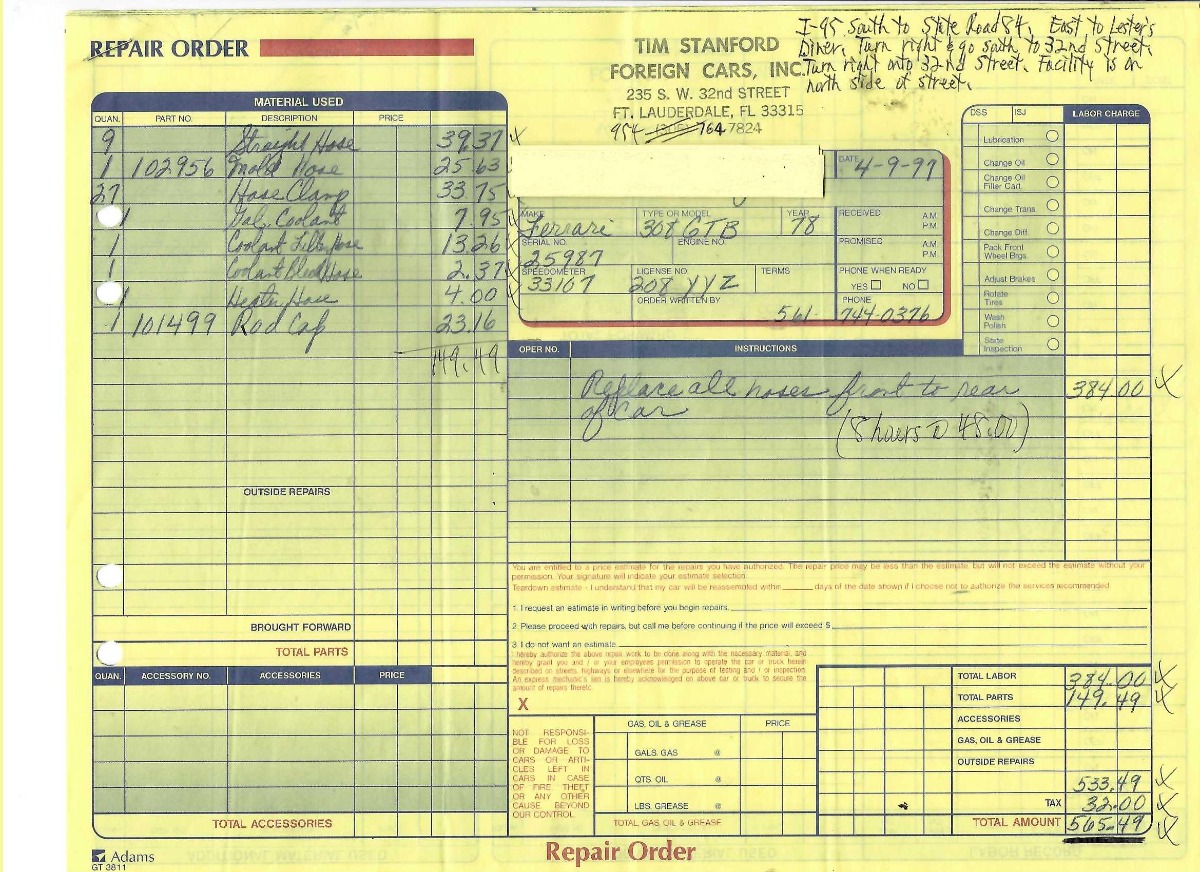 I-95 South to State Road 84. East to Lester's
Diner. Turn right & go south to 32nd Street.
Turn right onto 32nd Street. Facility is on
north side of street.
REPAIR ORDER
TIM STANFORD
FOREIGN CARS, INC.
235 S. W. 32nd STREET
FT. LAUDERDALE, FL 33315
954 (305) 764 7824
MATERIAL USED
QUAN. PART NO. DESCRIPTION PRICE
9 Straight Hose 39.37
1 102956 Mold Hose 25.63
27 Hose Clamp 33.75
1 Gal. Coolant 7.95
1 Coolant Fill Hose 13.26
1 Coolant Bleed Hose 2.37
1 Heater Hose 4.00
1 101499 Rad Cap 23.16
149.49
OUTSIDE REPAIRS
BROUGHT FORWARD
TOTAL PARTS
QUAN. ACCESSORY NO. ACCESSORIES PRICE
TOTAL ACCESSORIES
DATE 4-9-97
MAKE Ferrari TYPE OR MODEL 308 GTB YEAR 78
RECEIVED A.M. P.M.
SERIAL NO. 25987 ENGINE NO.
PROMISED A.M. P.M.
SPEEDOMETER 33107 LICENSE NO. 208 YYZ TERMS
PHONE WHEN READY
YES NO
ORDER WRITTEN BY
PHONE 561- 744-0376
DSS ISJ LABOR CHARGE
Lubrication
Change Oil
Change Oil
Filter Cart.
Change Trans.
Change Diff.
Pack Front
Wheel Brgs.
Adjust Brakes
Rotate
Tires
Wash
Polish
State
Inspection
OPER NO. INSTRUCTIONS
Replace all hoses front to rear 384.00
of car
(8 hours @ 48.00)
You are entitled to a price estimate for the repairs you have authorized. The repair price may be less than the estimate, but will not exceed the estimate without your
permission. Your signature will indicate your estimate selection.
Teardown estimate - I understand that my car will be reassembled within ______ days of the date shown if I choose not to authorize the services recommended.
1. I request an estimate in writing before you begin repairs.
2. Please proceed with repairs, but call me before continuing if the price will exceed $
3. I do not want an estimate
I hereby authorize the above repair work to be done along with the necessary material, and
hereby grant you and / or your employees permission to operate the car or truck herein
described on streets, highways or elsewhere for the purpose of testing and / or inspection.
An express mechanic's lien is hereby acknowledged on above car or truck to secure the
amount of repairs thereto.
X
NOT RESPONSI-
BLE FOR LOSS
OR DAMAGE TO
CARS OR ARTI-
CLES LEFT IN
CARS IN CASE
OF FIRE THEFT
OR ANY OTHER
CAUSE BEYOND
OUR CONTROL.
GAS, OIL & GREASE PRICE
GALS. GAS @
QTS. OIL @
LBS. GREASE @
TOTAL GAS, OIL & GREASE
TOTAL LABOR 384.00
TOTAL PARTS 149.49
ACCESSORIES
GAS, OIL & GREASE
OUTSIDE REPAIRS
533.49
TAX 32.00
TOTAL AMOUNT 565.49
Adams
GT 3811
Repair Order